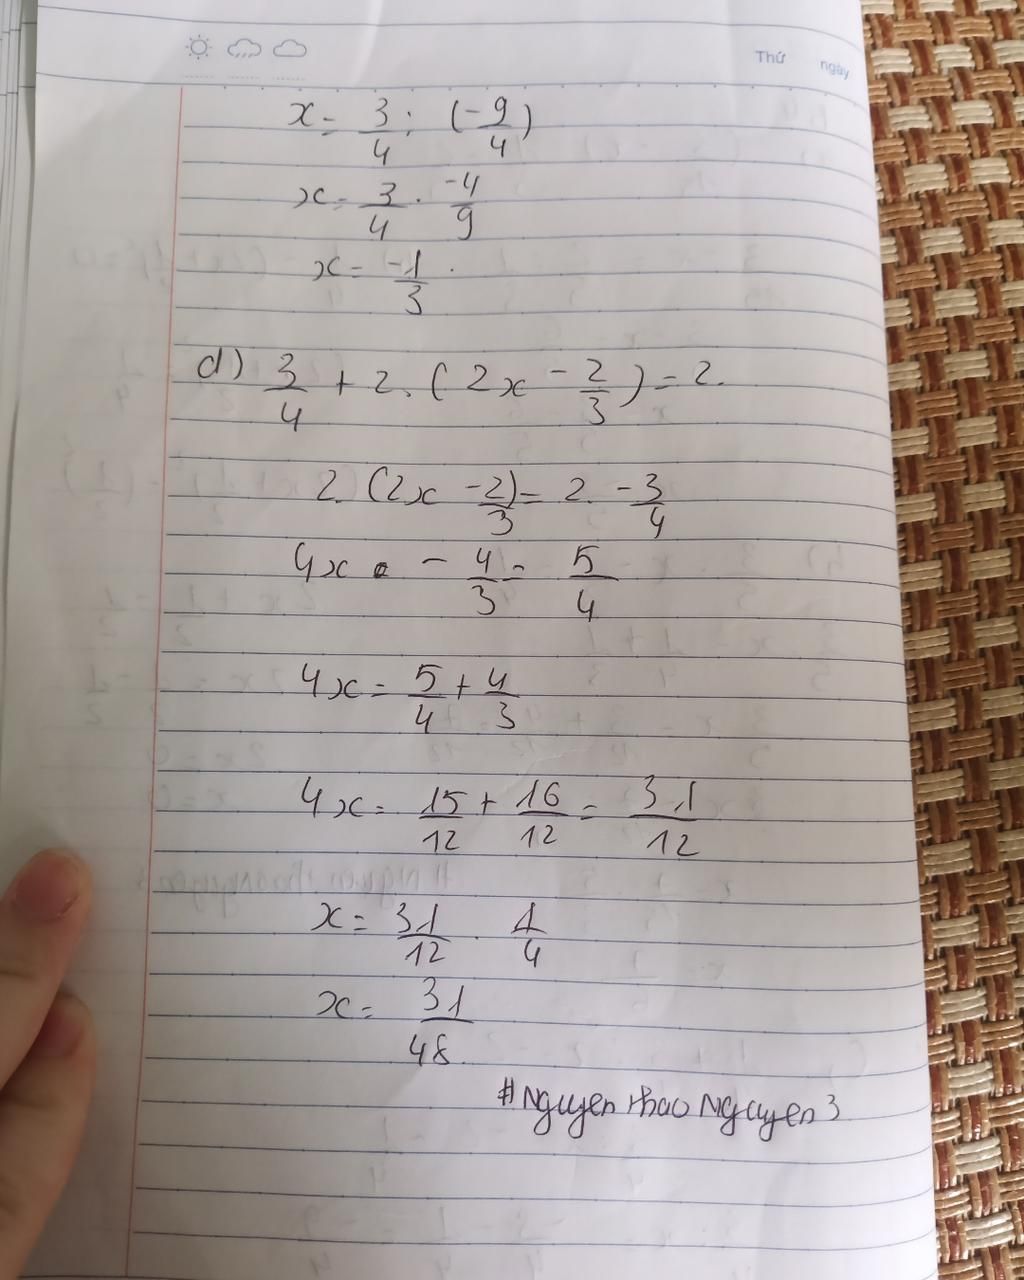 Thứ ngày
x = 3/4 : (-9/4)
x = 3/4 . -4/9
x = -1/3 .
d) 3/4 + 2. (2x - 2/3) = 2.
2. (2x - 2/3) = 2. - 3/4
4x - 4/3 = 5/4
4x = 5/4 + 4/3
4x = 15/12 + 16/12 = 31/12
x = 31/12 . 1/4
x = 31/48
#Nguyen thao Nguyen3